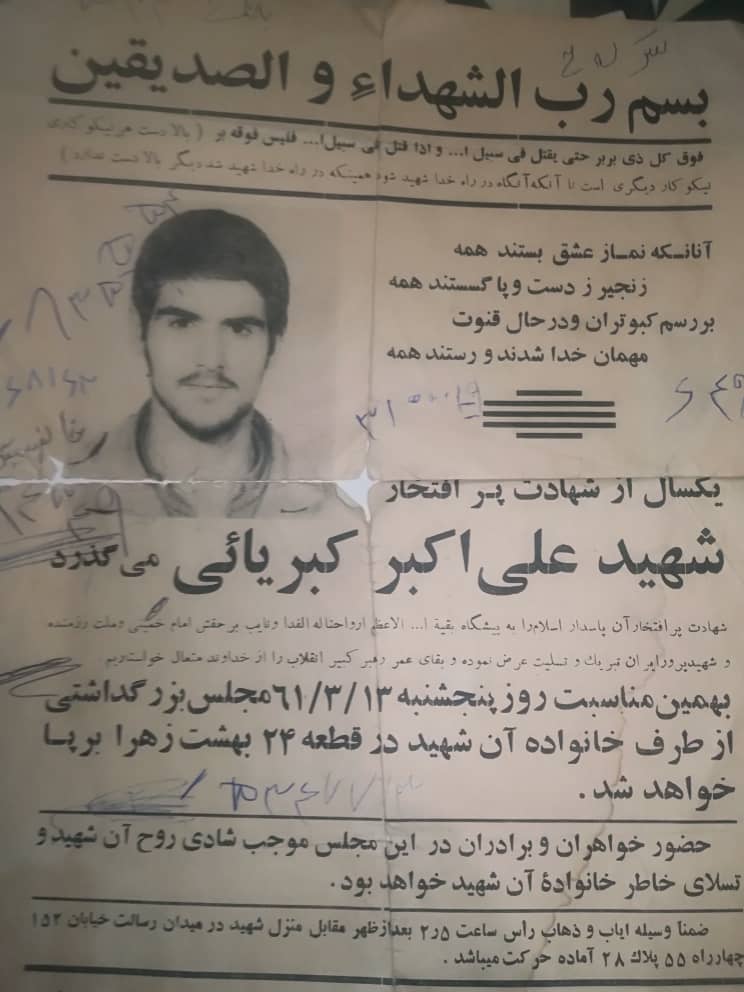 بسم رب الشهداءِ و الصدیقین
فوق کل ذی بربر حتی یقتل فی سبیل ا... و اذا قتل فی سبیل ا... فلیس فوقه بر ( بالا دست هر نیکو کاری
نیکو کار دیگری است تا آنکه آنگاه در راه خدا شهید شود همینکه در راه خدا شهید شد دیگر بالا دست ندارد )
آنانـکه نمـاز عشق بستند همه
زنجیر ز دست و پا گسستند همه
بر رسم کبوتران و در حال قنوت
مهمان خدا شدند و رستند همه
یکسال از شهادت پـر افتخار
شهید علی اکبر کبریائی می گذرد
شهادت پر افتخار آن پاسدار اسلام را به پیشگاه بقیة ا... الاعظم ارواحناله الفدا و نایب بر حقش امام خمینی و ملت رزمنده
و شهید پرور ایران تبریك و تسلیت عرض نموده و بقای عمر رهبر کبیر انقلاب را از خداوند متعال خواستاریم .
بهمین مناسبت روز پنجشنبه ۶۱/۳/۱۳ مجلس بزرگداشتی
از طرف خانواده آن شهید در قطعه ۲۴ بهشت زهرا بر پـا
خواهد شد .
۳۱
حضور خواهران و برادران در این مجلس موجب شادی روح آن شهید و
تسلای خاطر خانوادهٔ آن شهید خواهد بود .
ضمناً وسیله ایاب و ذهاب رأس ساعت ۲٫۵ بعدازظهر مقابل منزل شهید در میدان رسالت خیابان ۱۵۲
چهارراه ۵۵ پلاك ۲۸ آماده حرکت میباشد .